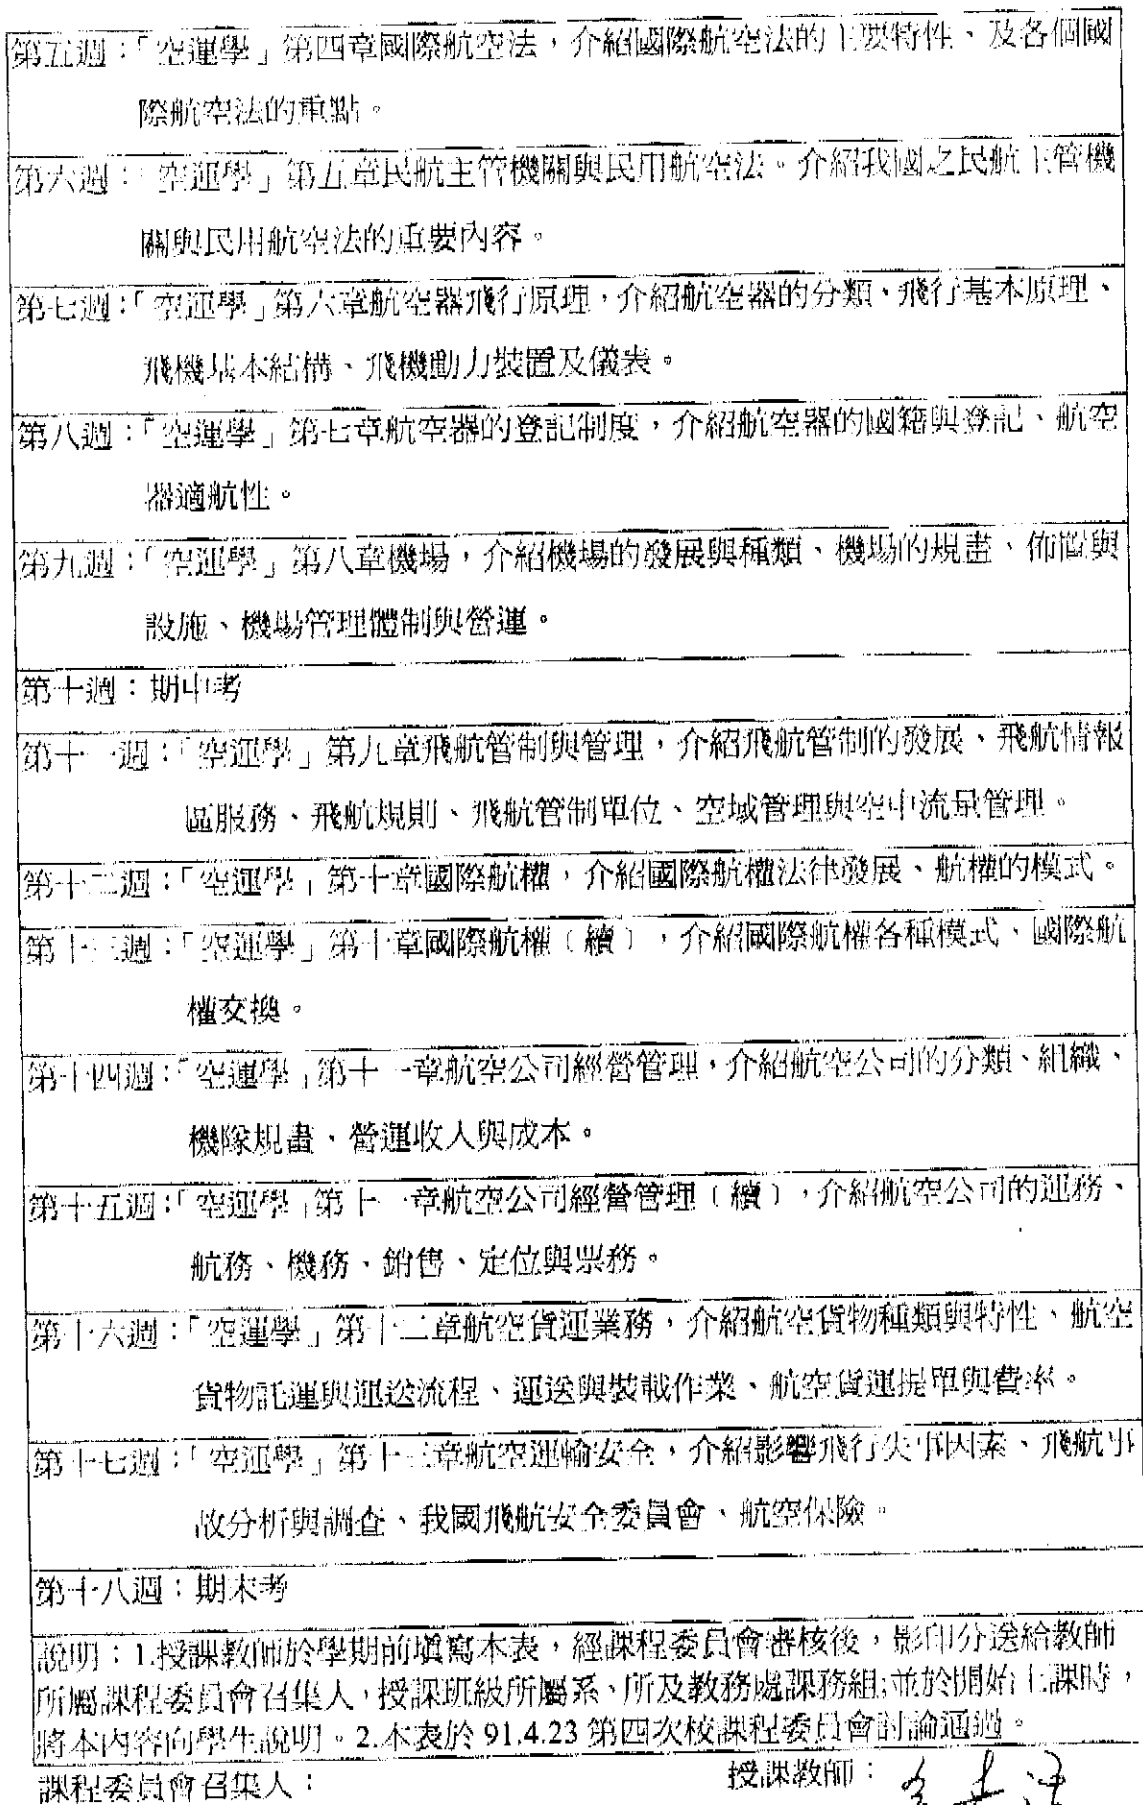 第五週：「空運學」第四章國際航空法，介紹國際航空法的主要特性、及各個國
際航空法的重點。
第六週：「空運學」第五章民航主管機關與民用航空法。介紹我國之民航主管機
關與民用航空法的重要內容。
第七週：「空運學」第六章航空器飛行原理，介紹航空器的分類、飛行基本原理、
飛機基本結構、飛機動力裝置及儀表。
第八週：「空運學」第七章航空器的登記制度，介紹航空器的國籍與登記、航空
器適航性。
第九週：「空運學」第八章機場，介紹機場的發展與種類、機場的規畫、佈置與
設施、機場管理體制與營運。
第十週：期中考
第十一週：「空運學」第九章飛航管制與管理，介紹飛航管制的發展、飛航情報
區服務、飛航規則、飛航管制單位、空域管理與空中流量管理。
第十二週：「空運學」第十章國際航權，介紹國際航權法律發展、航權的模式。
第十三週：「空運學」第十章國際航權（續），介紹國際航權各種模式、國際航
權交換。
第十四週：「空運學」第十一章航空公司經營管理，介紹航空公司的分類、組織、
機隊規畫、營運收入與成本。
第十五週：「空運學」第十一章航空公司經營管理（續），介紹航空公司的運務、
航務、機務、銷售、定位與票務。
第十六週：「空運學」第十二章航空貨運業務，介紹航空貨物種類與特性、航空
貨物託運與運送流程、運送與裝載作業、航空貨運提單與費率。
第十七週：「空運學」第十三章航空運輸安全，介紹影響飛行失事因素、飛航事
故分析與調查、我國飛航安全委員會、航空保險。
第十八週：期末考
說明：1.授課教師於學期前填寫本表，經課程委員會審核後，影印分送給教師
所屬課程委員會召集人，授課班級所屬系、所及教務處課務組;並於開始上課時，
將本內容向學生說明。2.本表於 91.4.23 第四次校課程委員會討論通過。
課程委員會召集人：
授課教師：